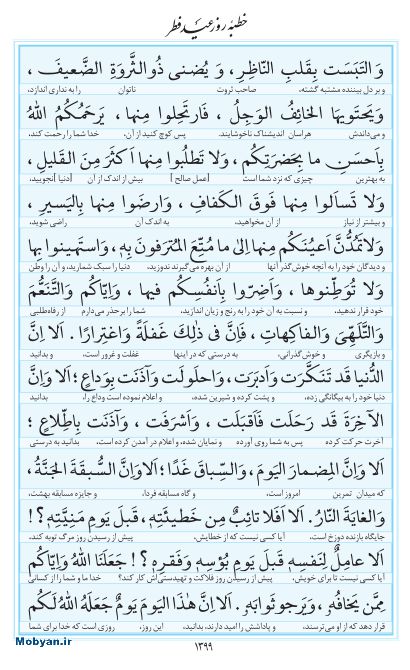 خطبهٔ روز عید فطر
وَ التَبَسَت بِقَلبِ النّاظِرِ، وَ يُضنى ذُوالثَّروَةِ الضَّعيفَ،
و بر دل بیننده مشتبه گشته، صاحب ثروت ناتوان را به نداری اندازد،
وَ يَحتَويهَا الخائِفُ الوَجِلُ، فَارتَحِلوا مِنها، يَرحَمُكُمُ اللهُ
و می‌داندش هراسان اندیشناک ناخوشایند. پس کوچ کنید از آن، خدا شما را رحمت کند،
بِاَحسَنِ ما بِحَضرَتِكُم، وَلا تَطلُبوا مِنها اَكثَرَ مِنَ القَليلِ،
به بهترین چیزی که نزد شما است [عمل صالح] بیش از اندک از آن [دنیا] نجویید،
وَلا تَسأَلوا مِنها فَوقَ الكَفافِ، وَارضَوا مِنها بِاليَسيرِ،
و بیشتر از نیاز از آن مخواهید، به اندک آن راضی شوید،
وَلا تَمُدُّنَّ اَعيُنَكُم مِنها اِلىٰ ما مُتِّعَ المُترَفونَ بِهِ، وَاستَهينوا بِها
و دیدگان خود را به آنچه خوش گذر آنها از آن بهره می‌گیرند ندوزید، دنیا را سبک شمارید، و آن را وطن
وَلا تُوَطِّنوها، وَاَضِرّوا بِاَنفُسِكُم فيها، وَاِيّاكُم وَالتَّنَعُّمَ
خود قرار ندهید. و نسبت به آن خود را به رنج و زیان اندازید، شما را برحذر می‌دارم از رفاه‌طلبی
وَالتَّلَهِّىَ وَالفاكِهاتِ، فَاِنَّ فى ذٰلِكَ غَفلَةً وَاغتِرارًا. اَلا اِنَّ
و بازیگری و خوش گذرانی، به درستی که در اینها غفلت و غرور است، و بدانید
الدُّنيا قَد تَنَكَّرَت وَاَدبَرَت، وَاحلَولَت وَآذَنَت بِوَداعٍ؛ اَلا وَاِنَّ
دنیا خود را به بیگانگی زده، و پشت کرده و شیرین شده، و اعلام نموده است وداع را، بدانید
الآخِرَةَ قَد رَحَلَت فَاَقبَلَت، وَاَشرَفَت، وَآذَنَت بِاطِّلاعٍ؛
آخرت حرکت کرده پس به شما روی آورده و نمایان شده، و اعلام در آمدن کرده است. بدانید به درستی
اَلا وَاِنَّ المِضمارَ اليَومَ، وَالسِّباقَ غَدًا؛ اَلا وَاِنَّ السُّبقَةَ الجَنَّةُ،
که میدان تمرین امروز است، و گاه مسابقه فردا، و جایزه مسابقه بهشت،
وَالغايَةَ النّارُ. اَلا اَفَلا تائِبٌ مِن خَطيئَتِهِ، قَبلَ يَومِ مَنِيَّتِهِ؟!
جایگاه بازنده دوزخ است، آیا کسی نیست که از خطایش، پیش از رسیدن روز مرگ توبه کند.
اَلا عامِلٌ لِنَفسِهِ قَبلَ يَومِ بُؤسِهِ وَفَقرِهِ؟! جَعَلَنَا اللهُ وَاِيّاكُم
آیا کسی نیست تا برای خویش، پیش از رسیدن روز فلاکت و تهیدستی‌اش کار کند؟ خدا ما و شما را از کسانی
مِمَّن يَخافُهُ، وَيَرجو ثَوابَهُ. اَلا اِنَّ هٰذَا اليَومَ يَومٌ جَعَلَهُ اللهُ لَكُم
قرار دهد که از او می‌ترسند، و پاداشش را امید دارند، بدانید، این روز، روزی است که خدا برای شما
Mobyan.ir
١٣٩٩